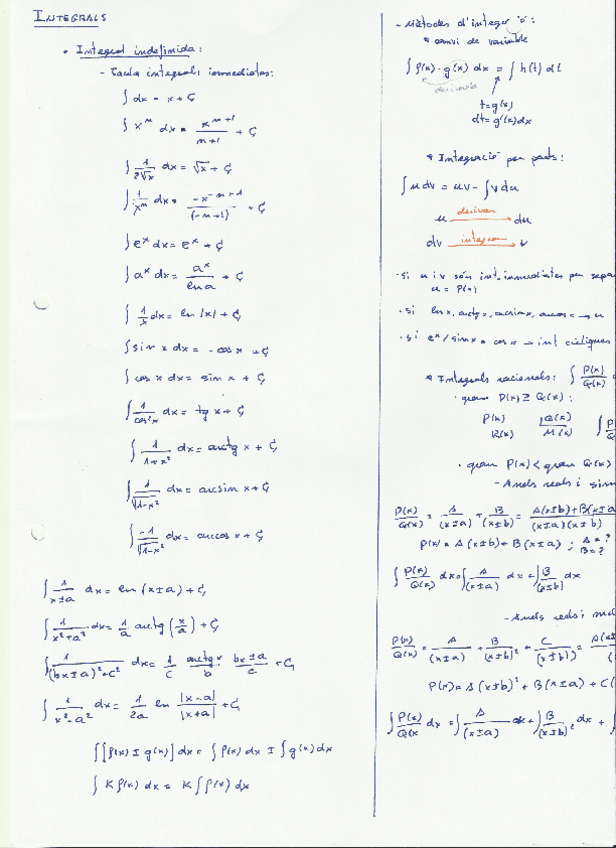 INTEGRALS
• Integral indefinida:
- Taula integrals immediates:
∫ dx = x + C
∫ x^n dx = x^(n+1)/(n+1) + C
∫ 1/(2√x) dx = √x + C
∫ 1/x^n dx = -x^(-n+1)/(-n+1) + C
∫ e^x dx = e^x + C
∫ a^x dx = a^x/ln a + C
∫ 1/x dx = ln |x| + C
∫ sin x dx = - cos x + C
∫ cos x dx = sin x + C
∫ 1/cos²x dx = tg x + C
∫ 1/(1+x²) dx = arctg x + C
∫ 1/√(1-x²) dx = arcsin x + C
∫ -1/√(1-x²) dx = arccos x + C
∫ 1/(x±a) dx = ln (x±a) + C
∫ 1/(x²+a²) dx = 1/a arctg (x/a) + C
∫ 1/((bx±a)²+c²) dx = 1/c arctg/b · (bx±a)/c + C
∫ 1/(x²-a²) dx = 1/2a ln |x-a|/|x+a| + C
∫ [f(x) ± g(x)] dx = ∫ f(x) dx ± ∫ g(x) dx
∫ K f(x) dx = K ∫ f(x) dx
- Mètodes d'integr ó:
* canvi de variable
∫ f(x) · g(x) dx = ∫ h(t) dt
derivada
t = g(x)
dt = g'(x) dx
* Integració per parts:
∫ u dv = uv - ∫ v du
u derivar du
dv integrar v
· si u i v són int. immediates per sepa
u = P(x)
· si ln x, arctg x, arcsin x, arccos x → u
· si e^x / sin x o cos x → int cícliques
* Integrals racionals: ∫ P(x)/Q(x)
· grau P(x) ≥ Q(x):
P(x) |Q(x)
R(x) M(x)
∫ P
· grau P(x) < grau Q(x)
- Arrels reals i sim
P(x)/Q(x) = A/(x±a) + B/(x±b) = (A(x±b)+B(x±a)/(x±a)(x±b)
P(x) = A(x±b) + B(x±a) ; A=? B=?
∫ P(x)/Q(x) dx = ∫ A/(x±a) dx + ∫ B/(x±b) dx
- Arrels reals i mul
P(x)/Q(x) = A/(x±a) + B/(x±b)² + C/(x±b) = A(x±
P(x) = A(x±b)² + B(x±a) + C(
∫ P(x)/Q(x) dx = ∫ A/(x±a) dx + ∫ B/(x±b)² dx +